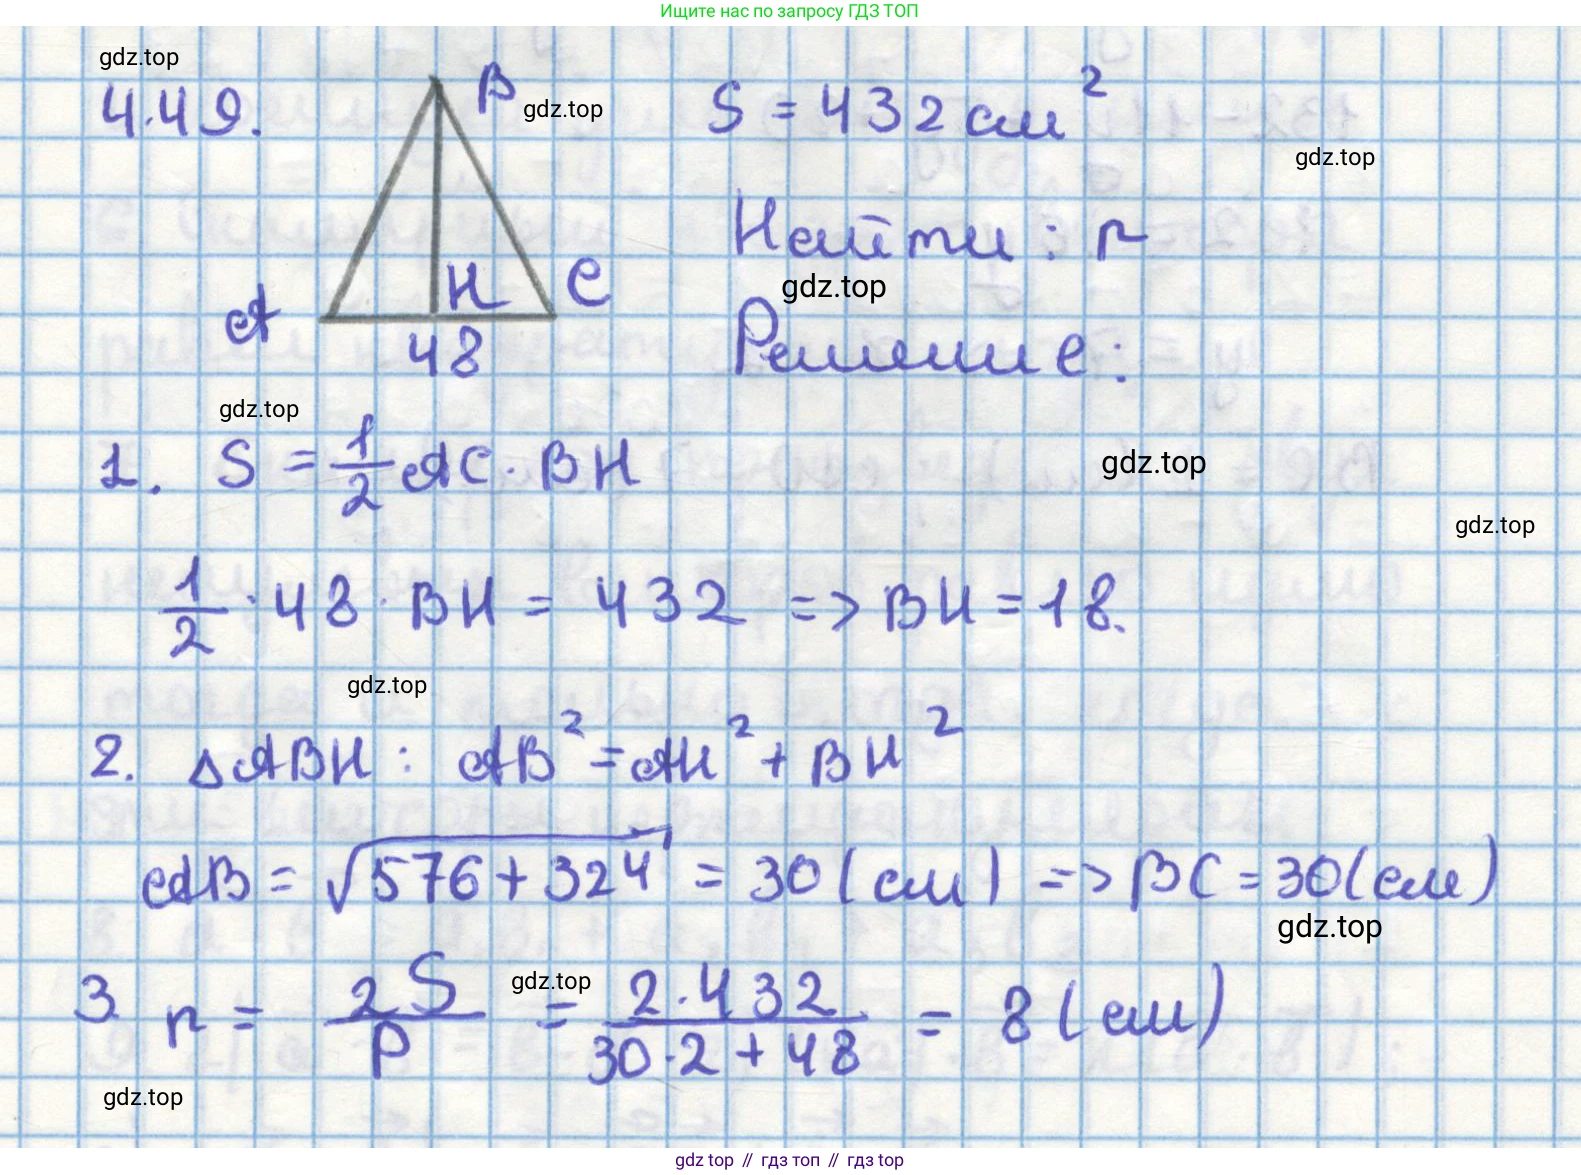 Ищите нас по запросу ГДЗ ТОП
gdz.top
4.49.
B
gdz.top
S = 432 см²
gdz.top
Найти: r
gdz.top
A
H
C
48
Решение:
gdz.top
1. S = 1/2 AC · BH
gdz.top
gdz.top
1/2 · 48 · BH = 432 => BH = 18.
gdz.top
2. △ABH: AB² = AH² + BH²
AB = √576 + 324 = 30 (см) => BC = 30 (см)
gdz.top
3. r = 2S/P = 2·432/30·2 + 48 = 8 (см)
gdz.top
gdz.top
gdz top // гдз топ // гдз top